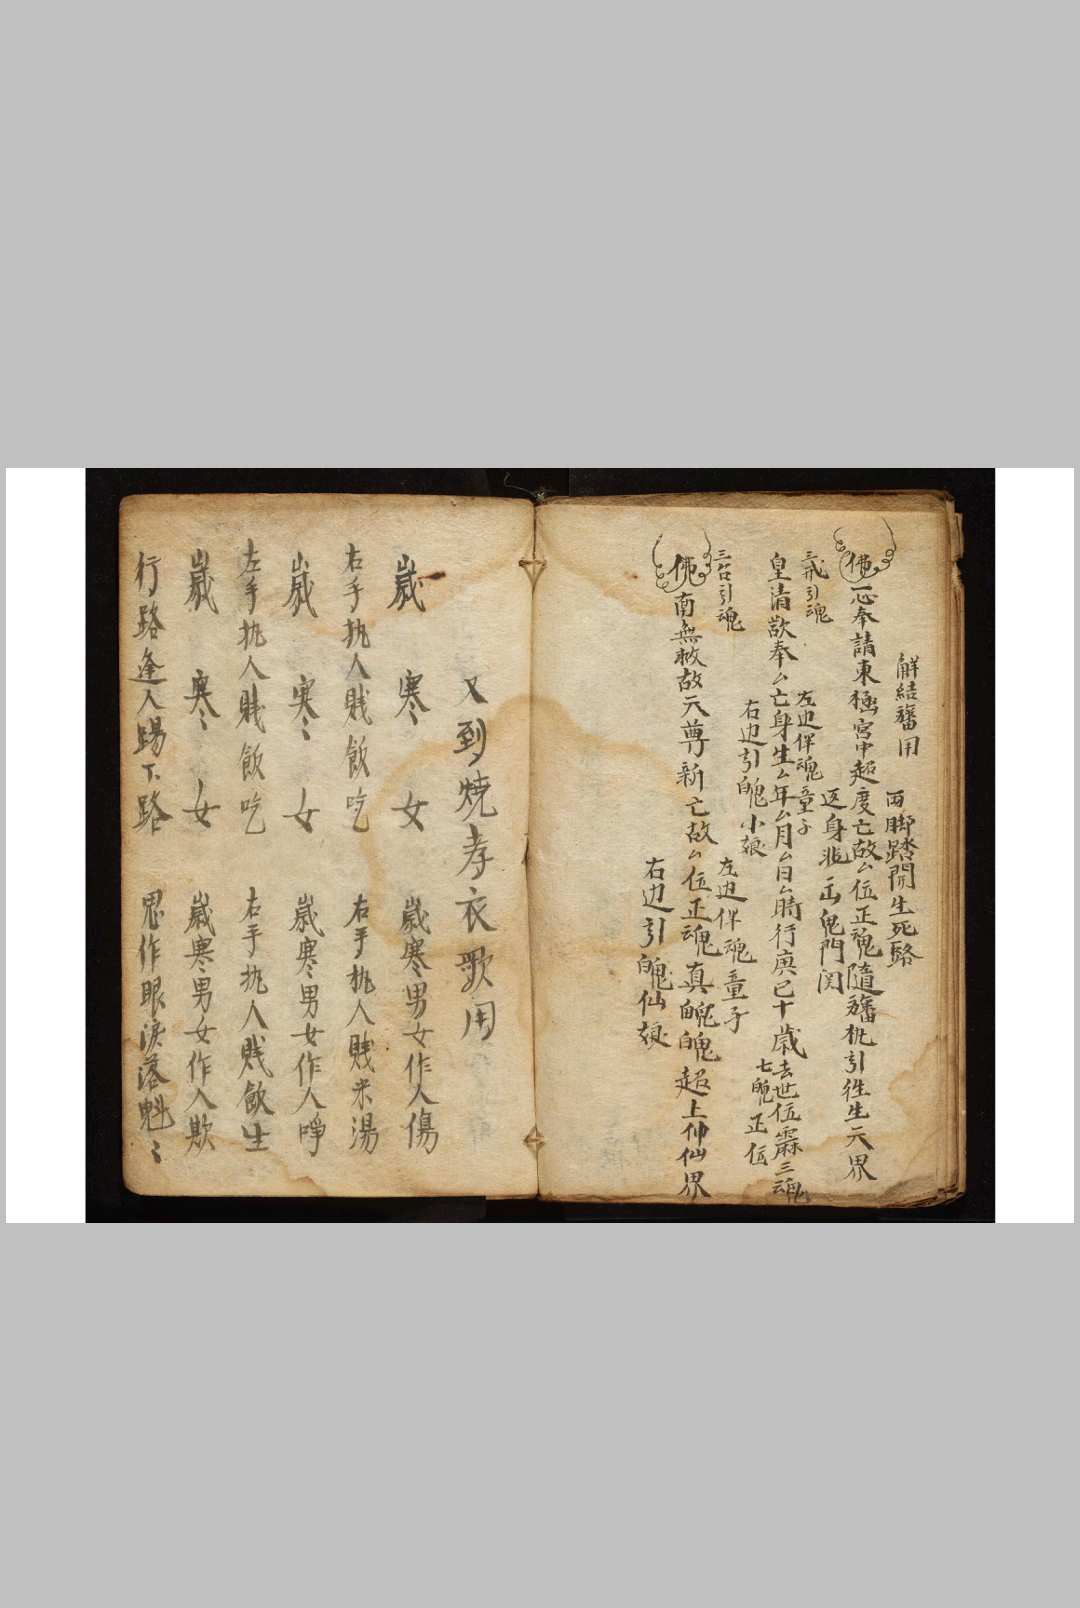 解結旛用
兩脚踏開生死路
佛 一心奉請東極宮中超度亡故厶位正魂隨旛執引往生天界
返身 出鬼門関
三戒引魂
左边伴魂童子
皇清歆奉厶亡身生厶年厶月厶日厶時行庚已十歲去世位霛三魂
七魄正位
右边引魄小娘
三台引魂
左边伴魂童子
佛 南無救故天尊新亡故厶位正魂真魄魄超上仲仙界
右边引魄仙娘
又到燒孝衣歌用
歲寒〻女 歲寒男女作人傷
右手执人賎飯吃 右手执人賎米湯
歲寒〻女 歲寒男女作人啍
左手执人賎飯吃 右手执人賎飲生
歲寒〻女 歲寒男女作人欺
行路逢人踢下路 思作眼淚落魁〻